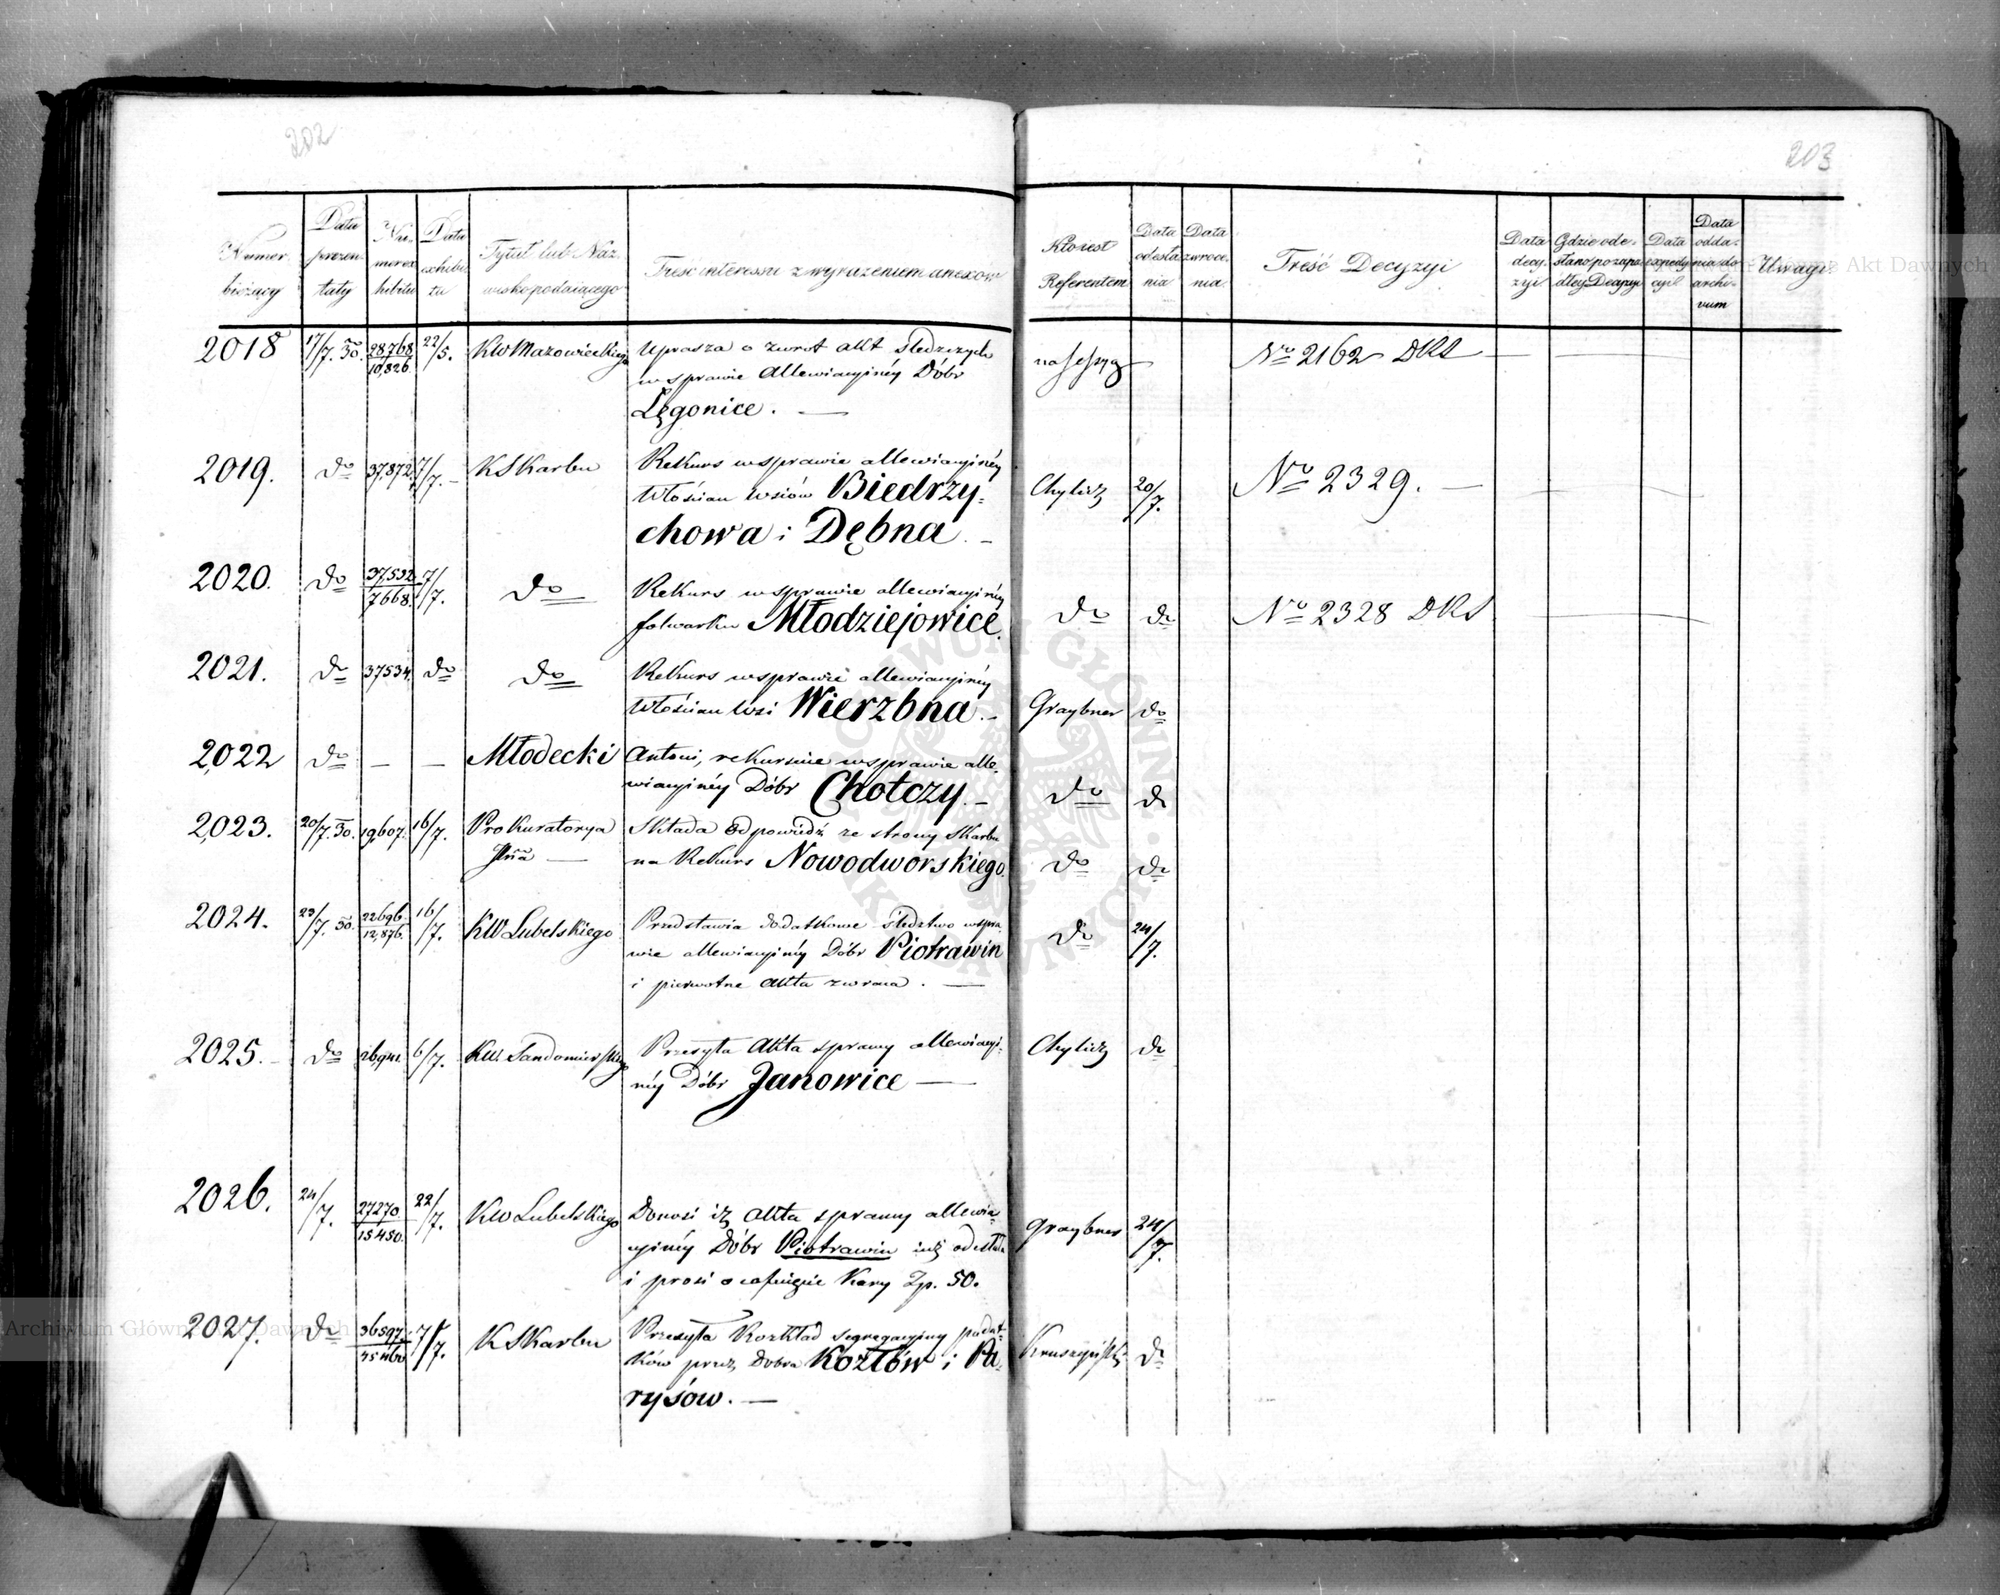 202
203
Numer bieżący
Data prezentaty
Numer exhibitu
Data exhibitu
Tytuł lub Nazwisko podaiącego
Treść interessu z wyrażeniem anexow
Kto iest Referentem
Data odesłania
Data zwrocenia
Treść Decyzyi
Data decyzyi
Gdzie odesłano po zapadłey Decyzyi
Data expedycyi
Data oddania do archivum
Uwagi
2018 17/7. 30. 28,768 22/5. KW Mazowieckiego Uprasza o zwrot akt śledczych
10,826 w sprawie Allewiacyinéy Dóbr
Lęgonice. — na sessyą No 2162 DKS — —
2019. do 37,872 7/7. KSKarbu Rekurs w sprawie allewiacyinéy
Włościan wsiów Biedrzy- Chylicz 20/7. No 2329. —
chowa i Dębna. —
2020. do 37,532 7/7. do Rekurs w sprawie allewiacyinéy
7668. folwarku Młodziejowice. do do No 2328 DKS
2021. do 37534. do do Rekurs w sprawie allewiacyinéy
Włościan Wsi Wierzbna. — Graybner do
2022 do — — Młodecki Antoni, rekursuie w sprawie alle-
wiacyinéy Dóbr Chotczy. — do do
2023. 20/7. 30. 19607. 16/7. Prokuratorya Składa odpowiedź ze strony Skarbu
na Rekurs Nowodworskiego. do do
2024. 23/7. 30. 22696. 16/7. KW Lubelskiego Przedstawia dodatkowe śledztwo w spra-
12,876. wie allewiacyinéy Dóbr Piotrawin do 24/7.
i pierwotne akta zwraca. —
2025. do 26941. 6/7. KW Sandomierskiego Przesyła Akta sprawy allewiacyi-
néy Dóbr Janowice — Chylicz do
2026. 24/7. 27270. 22/7. KW Lubelskiego Donosi iż Akta sprawy allewia-
15450. cyinéy Dóbr Piotrawin iuż odesłała Graybner 24/7.
i prosi o cofnięcie Kary Zp. 50.
2027. do 36597 7/7. KSKarbu Przesyła Rozkład segregacyiny podat-
45460 ków przez Dobra Kozłów i Pa- do
rysów. —
Archiwum Główne Akt Dawnych
Archiwum Główne Akt Dawnych
ARCHIWUM GŁÓWNE AKT DAWNYCH